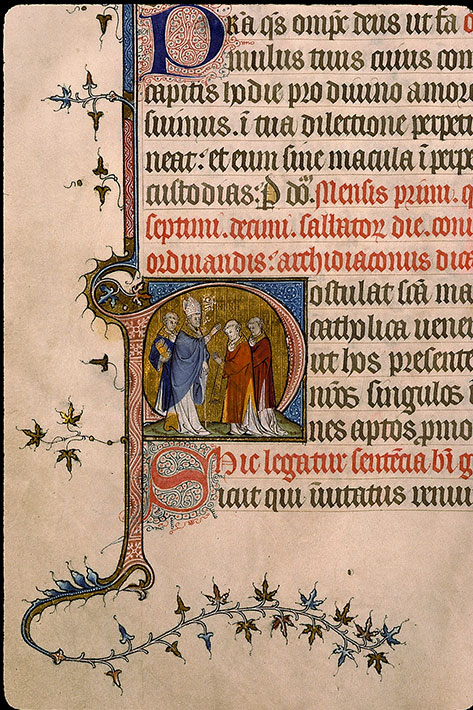 Pra q̄s omp̄c deus ut fa
mulus tuus cuius com
capitis hodie pro diuino amor
suimus. ī tua dilectione perpeti
neat: et eum sine macula ī perpe
custodias: P dō Mensis primi. q
septimi. decimi. sallator die. coui
ordinandis: archidiaconus dica
Postulat scā ma
catholica uene
ut hos present
mōs singulos
nes aptos pmo
hic legatur sentētia
Sicut qui